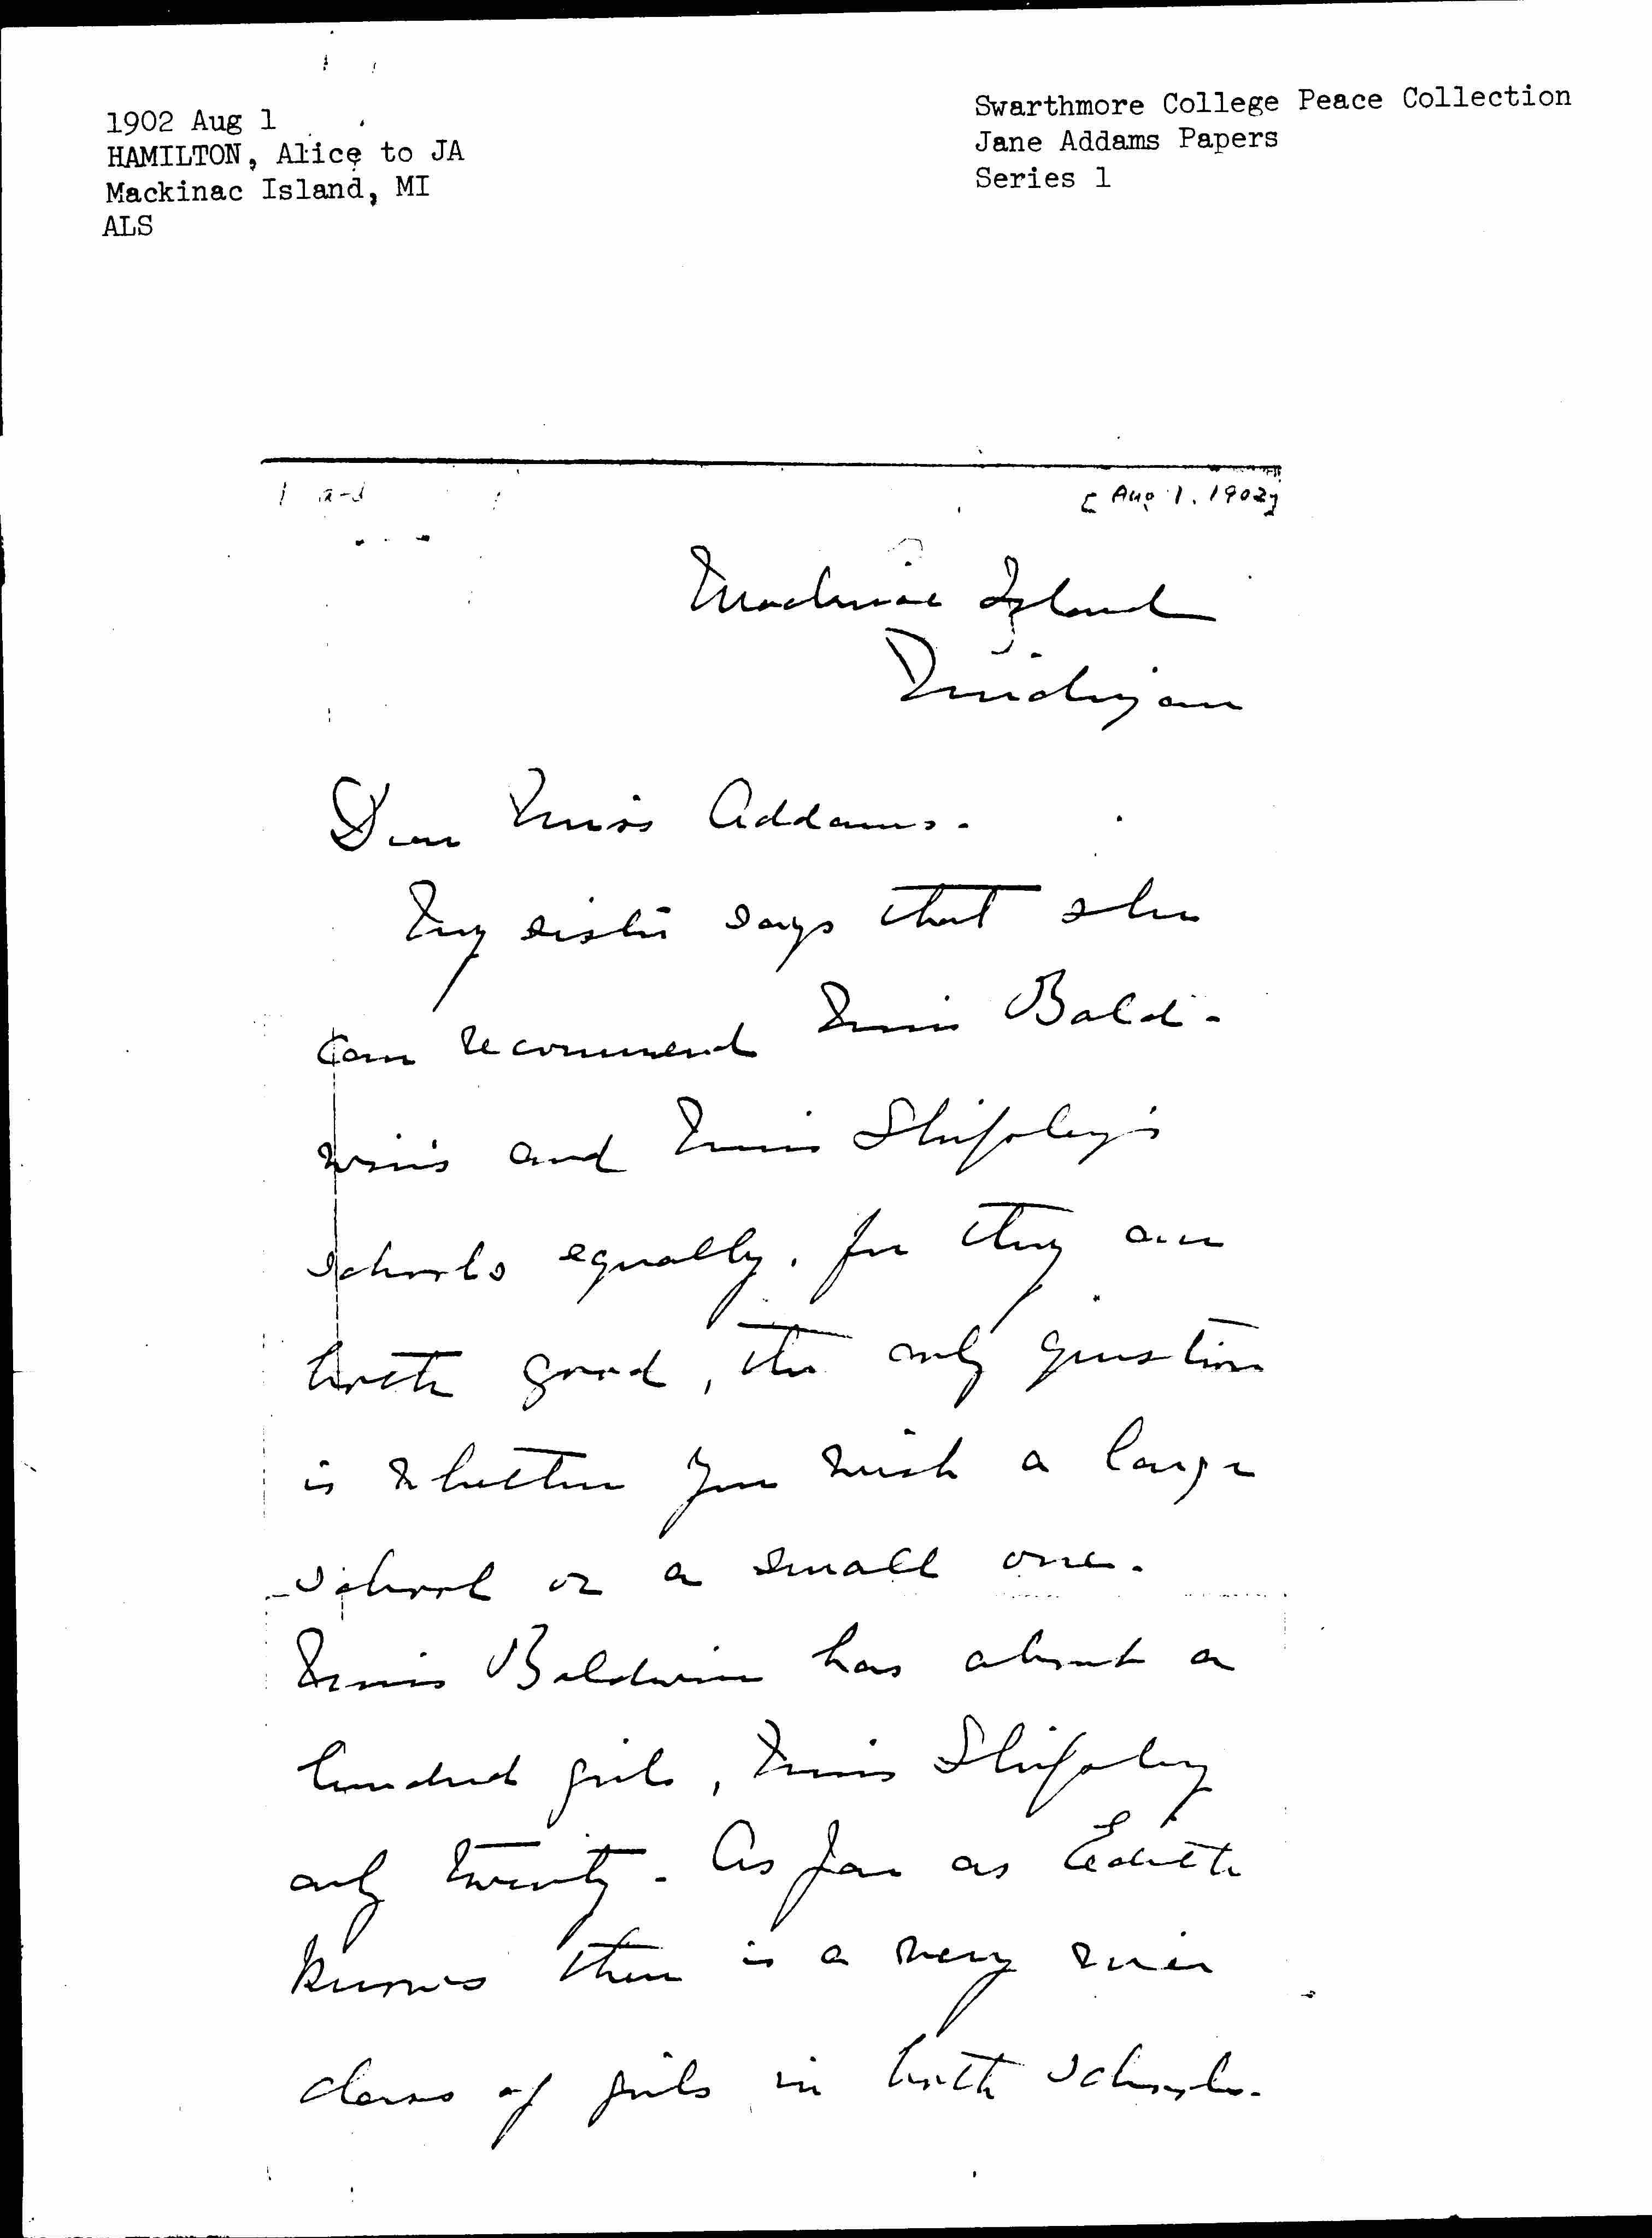 1902 Aug 1
HAMILTON, Alice to JA
Mackinac Island, MI
ALS
Swarthmore College Peace Collection
Jane Addams Papers
Series 1
[Aug 1. 1902]
Mackinac Island
Michigan
Dear Miss Addams.
My sister says that she
can recommend Miss Bald-
win's and Miss Shipley's
schools equally, for they are
both good, the only question
is whether you wish a large
school or a small one.
Miss Baldwin has about a
hundred girls, Miss Shipley
only twenty. As far as Edith
knows there is a very nice
class of girls in both schools.